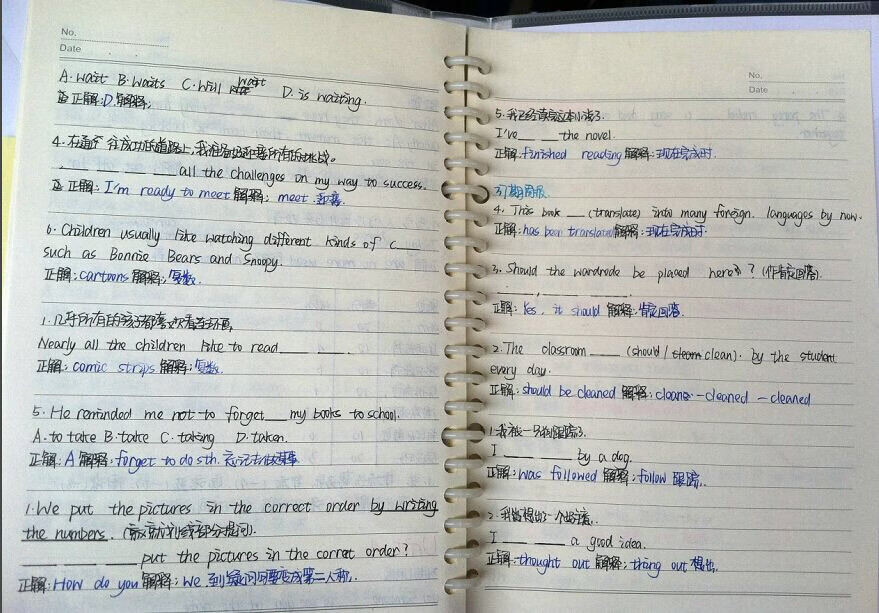 No.
Date
A. wait B. waits C. will wait D. is waiting.
正解: D. 解释:
4. 在通往成功的道路上,我准备好迎接所有的挑战。
___ ___ ___ ___ all the challenges on my way to success.
正解: I'm ready to meet 解释: meet 迎接.
6. Children usually like watching different kinds of c___
such as Bonnie Bears and Snoopy.
正解: cartoons 解释: 复数.
1. 几乎所有的孩子都喜欢看连环画,
Nearly all the children like to read ___ ___.
正解: comic strips 解释: 复数.
5. He reminded me not to forget ___ my books to school.
A. to take B. take C. taking D. taken.
正解: A 解释: forget to do sth. 忘记去做某事
1. We put the pictures in the correct order by writing
the numbers. (就划线部分提问).
___ ___ ___ ___ put the pictures in the corret order?
正解: How do you 解释: we 到疑问句要变成第二人称.
No.
Date
5. 我已经读完这本小说了.
I've ___ ___ the novel.
正解: finished reading 解释: 现在完成时.
37期周报
4. This book ___ (translate) into many foreign languages by now.
正解: has been translated 解释: 现在完成时.
3. Should the wardrobe be placed here? (作肯定回答).
___, ___ ___.
正解: Yes, it should 解释: 肯定回答.
2. The classroom ___ (should / clean). by the student
every day.
正解: should be cleaned 解释: clean - cleaned - cleaned
1. 我被一只狗跟踪了.
I ___ ___ by a dog.
正解: was followed 解释: follow 跟踪.
2. 我想出了一个好主意.
I ___ ___ a good idea.
正解: thought out 解释: thing out 想出.